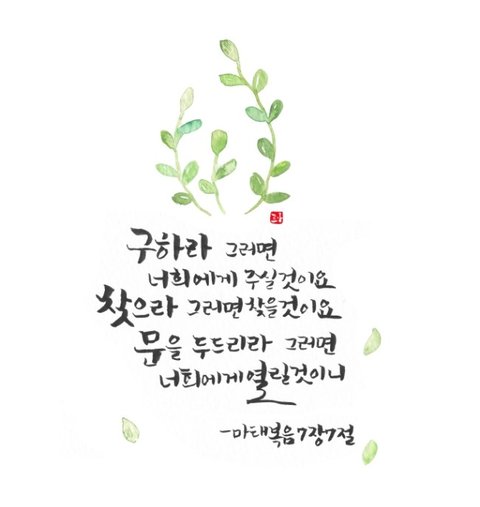 구하라 그러면
너희에게 주실것이요
찾으라 그러면 찾을것이요
문을 두드리라 그러면
너희에게 열릴것이니
-마태복음7장7절